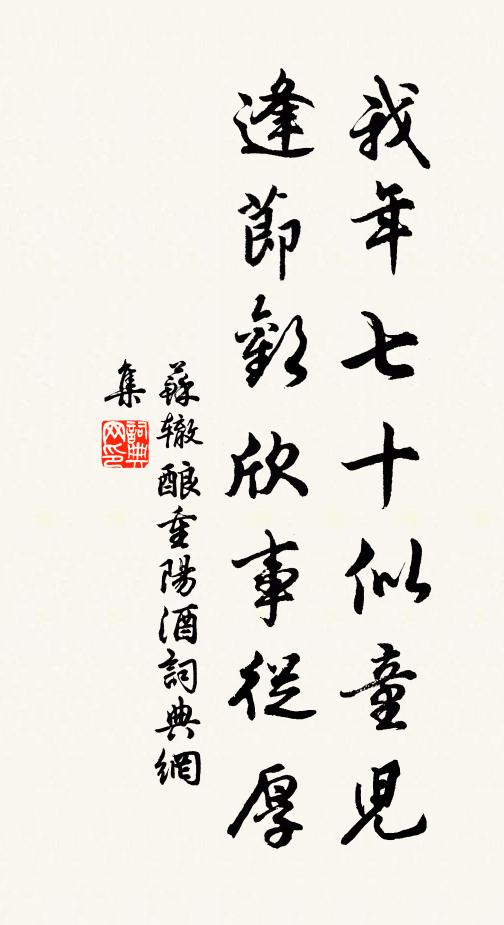 我年七十似童兒
逢節歡欣事從厚
蘇轍酿重陽酒詞典網
集
詞典网印